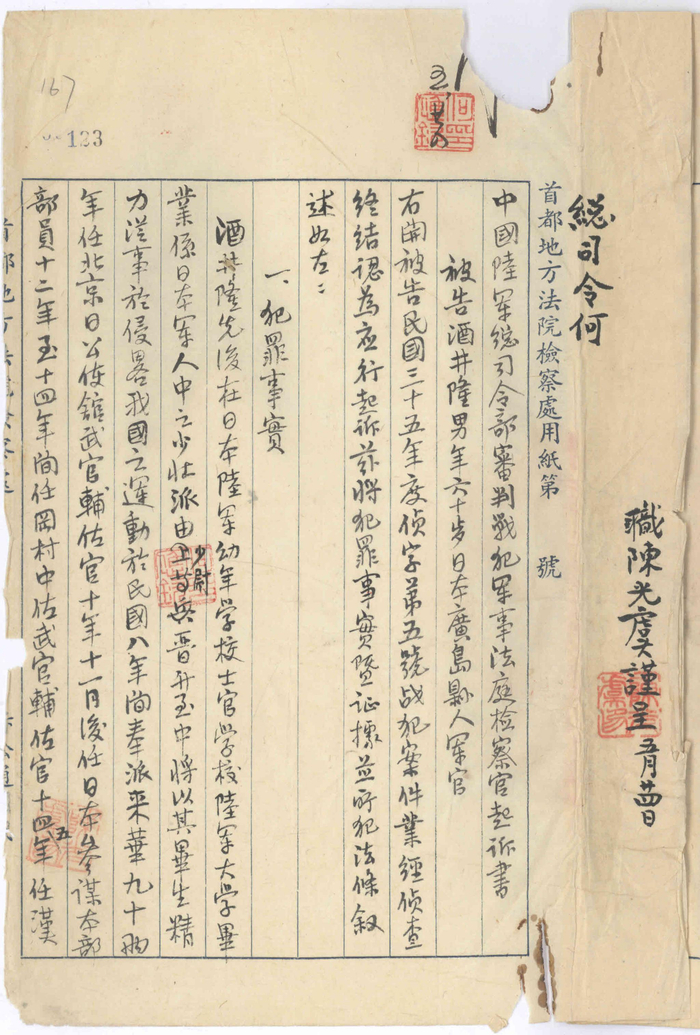 職陳光虞謹呈 五月廿四日
總司令何
首都地方法院檢察處用紙第 號
中國陸軍總司令部審判戰犯軍事法庭檢察官起訴書
被告酒井隆男年六十歲日本廣島縣人軍官
右開被告民國三十五年度偵字第五號战犯案件業經偵查
終結認為應行起訴茲將犯罪事實暨証據並所犯法條叙
述如左：
一、犯罪事實
酒井隆先後在日本陸軍幼年学校士官学校陸軍大学畢
業係日本軍人中之少壯派由少尉晋升至中將以其畢生精
力從事於侵畧我國之運動於民國八年间奉派來華九十两
年任北京日公使舘武官輔佐官十年十一月後任日本參谋本部
部員十二年至十四年间任岡村中佐武官輔佐官十五年任漢
167
123